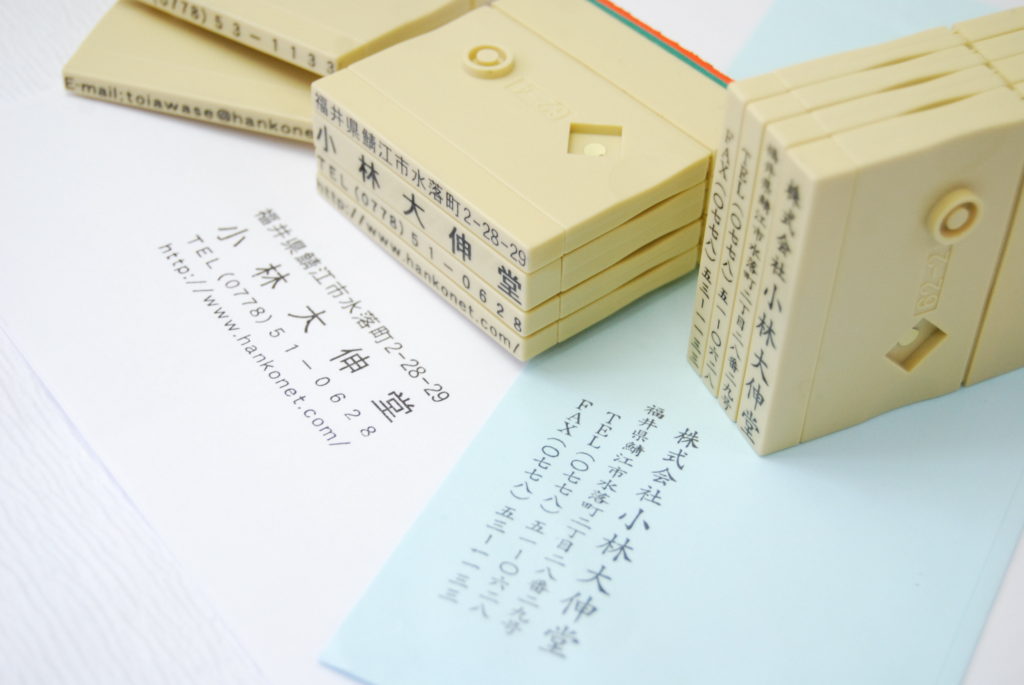 (0778)53-1133
E-mail:toiawase@hankone
福井県鯖江市水落町2-28-29
小林大伸堂
TEL(0778)51-0628
http://www.hankonet.com/
株式会社小林大伸堂
福井県鯖江市水落町二丁目二八番二九号
TEL(〇七七八)五一-〇六二八
FAX(〇七七八)五三-一一三三
B2-2
福井県鯖江市水落町2-28-29
小林大伸堂
TEL(0778)51-0628
http://www.hankonet.com/
株式会社小林大伸堂
福井県鯖江市水落町二丁目二八番二九号
TEL(〇七七八)五一-〇六二八
FAX(〇七七八)五三-一一三三